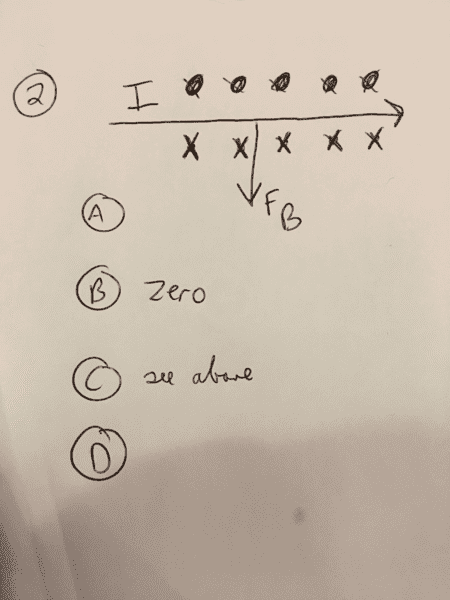 2
I
X X X X X
FB
A
B zero
C see above
D